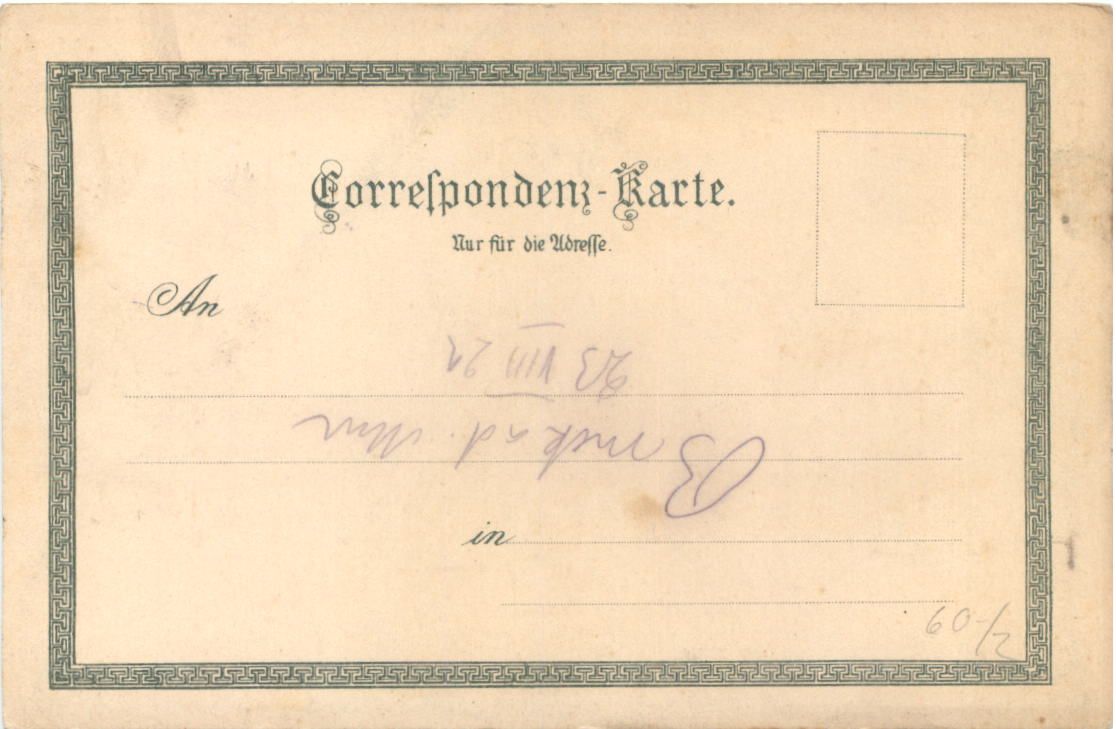 Correſpondenz-Karte.
Nur für die Adreſſe.
An
23 VIII 21
in
60-/2